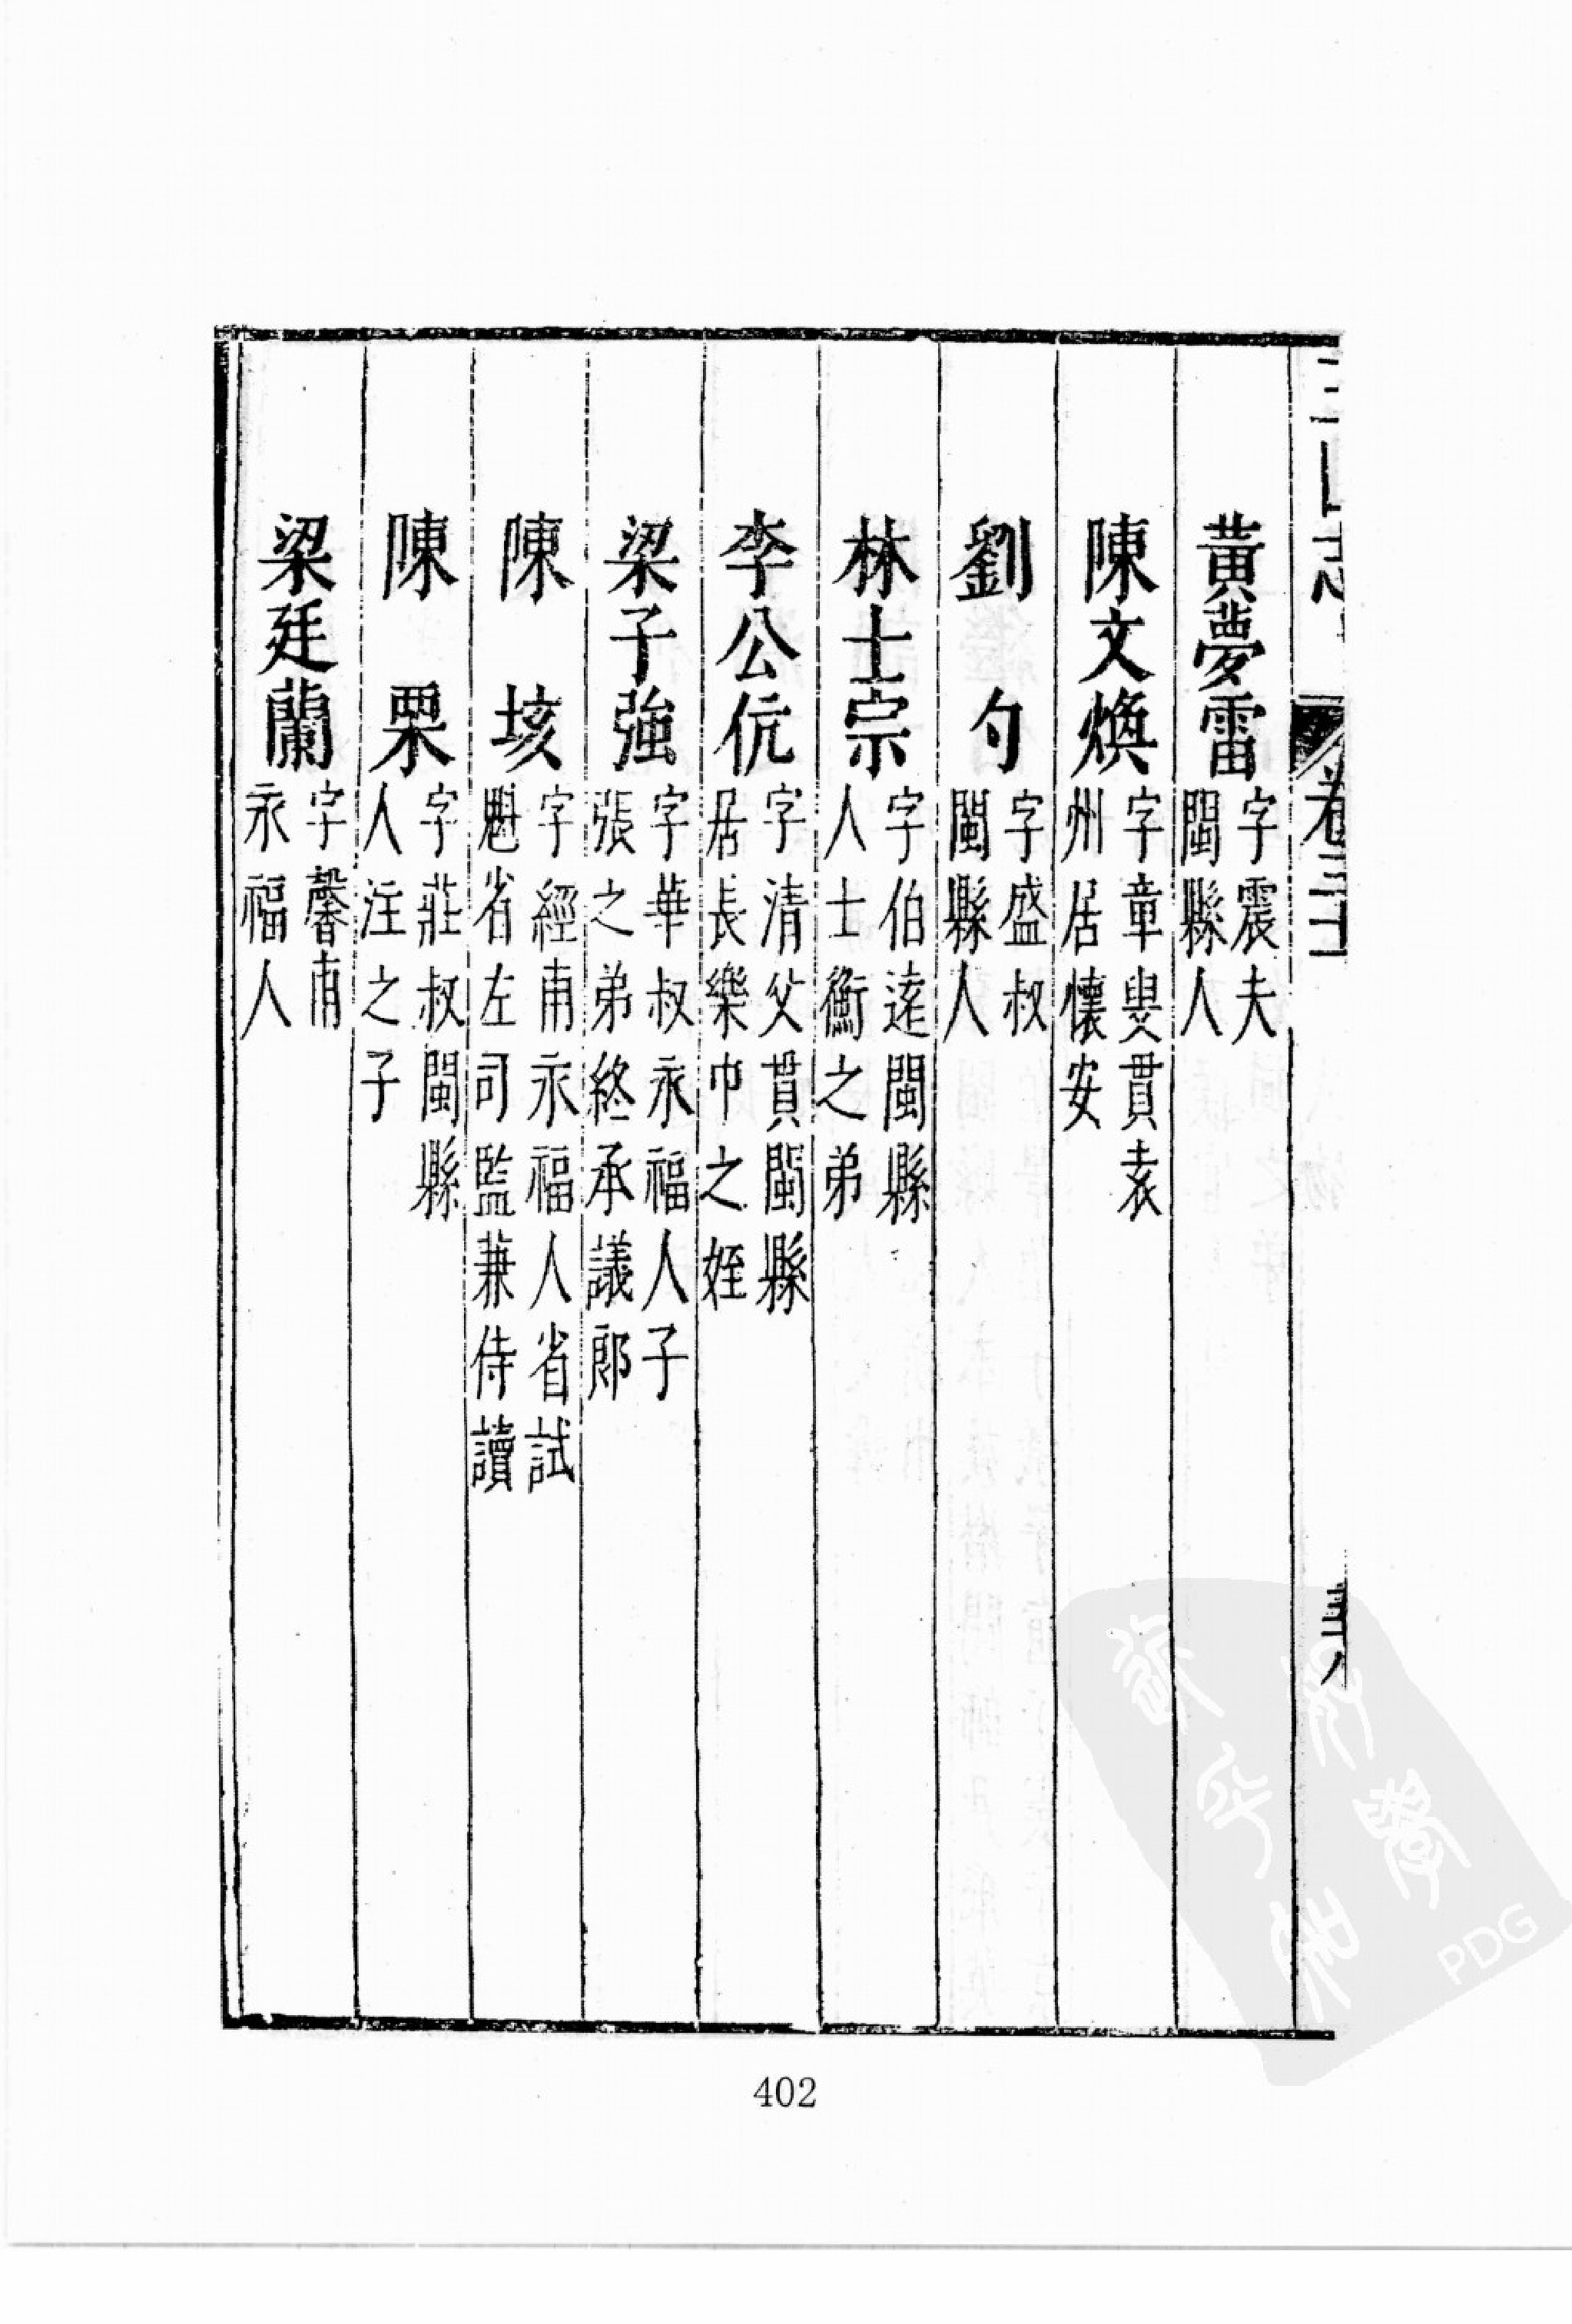 黃夢雷 字震夫
閩縣人
陳文煥 字章叟貫袁
州居懷安
劉勺 字盛叔
閩縣人
林士宗 字伯逺閩縣
人士衡之弟
李公伉 字清父貫閩縣
居長樂巾之姪
梁子強 字華叔永福人子
張之弟終承議郎
陳垓 字經甫永福人省試
魁省左司監兼侍讀
陳栗 字莊叔閩縣
人注之子
梁廷蘭 字馨甫
永福人
402
PDG